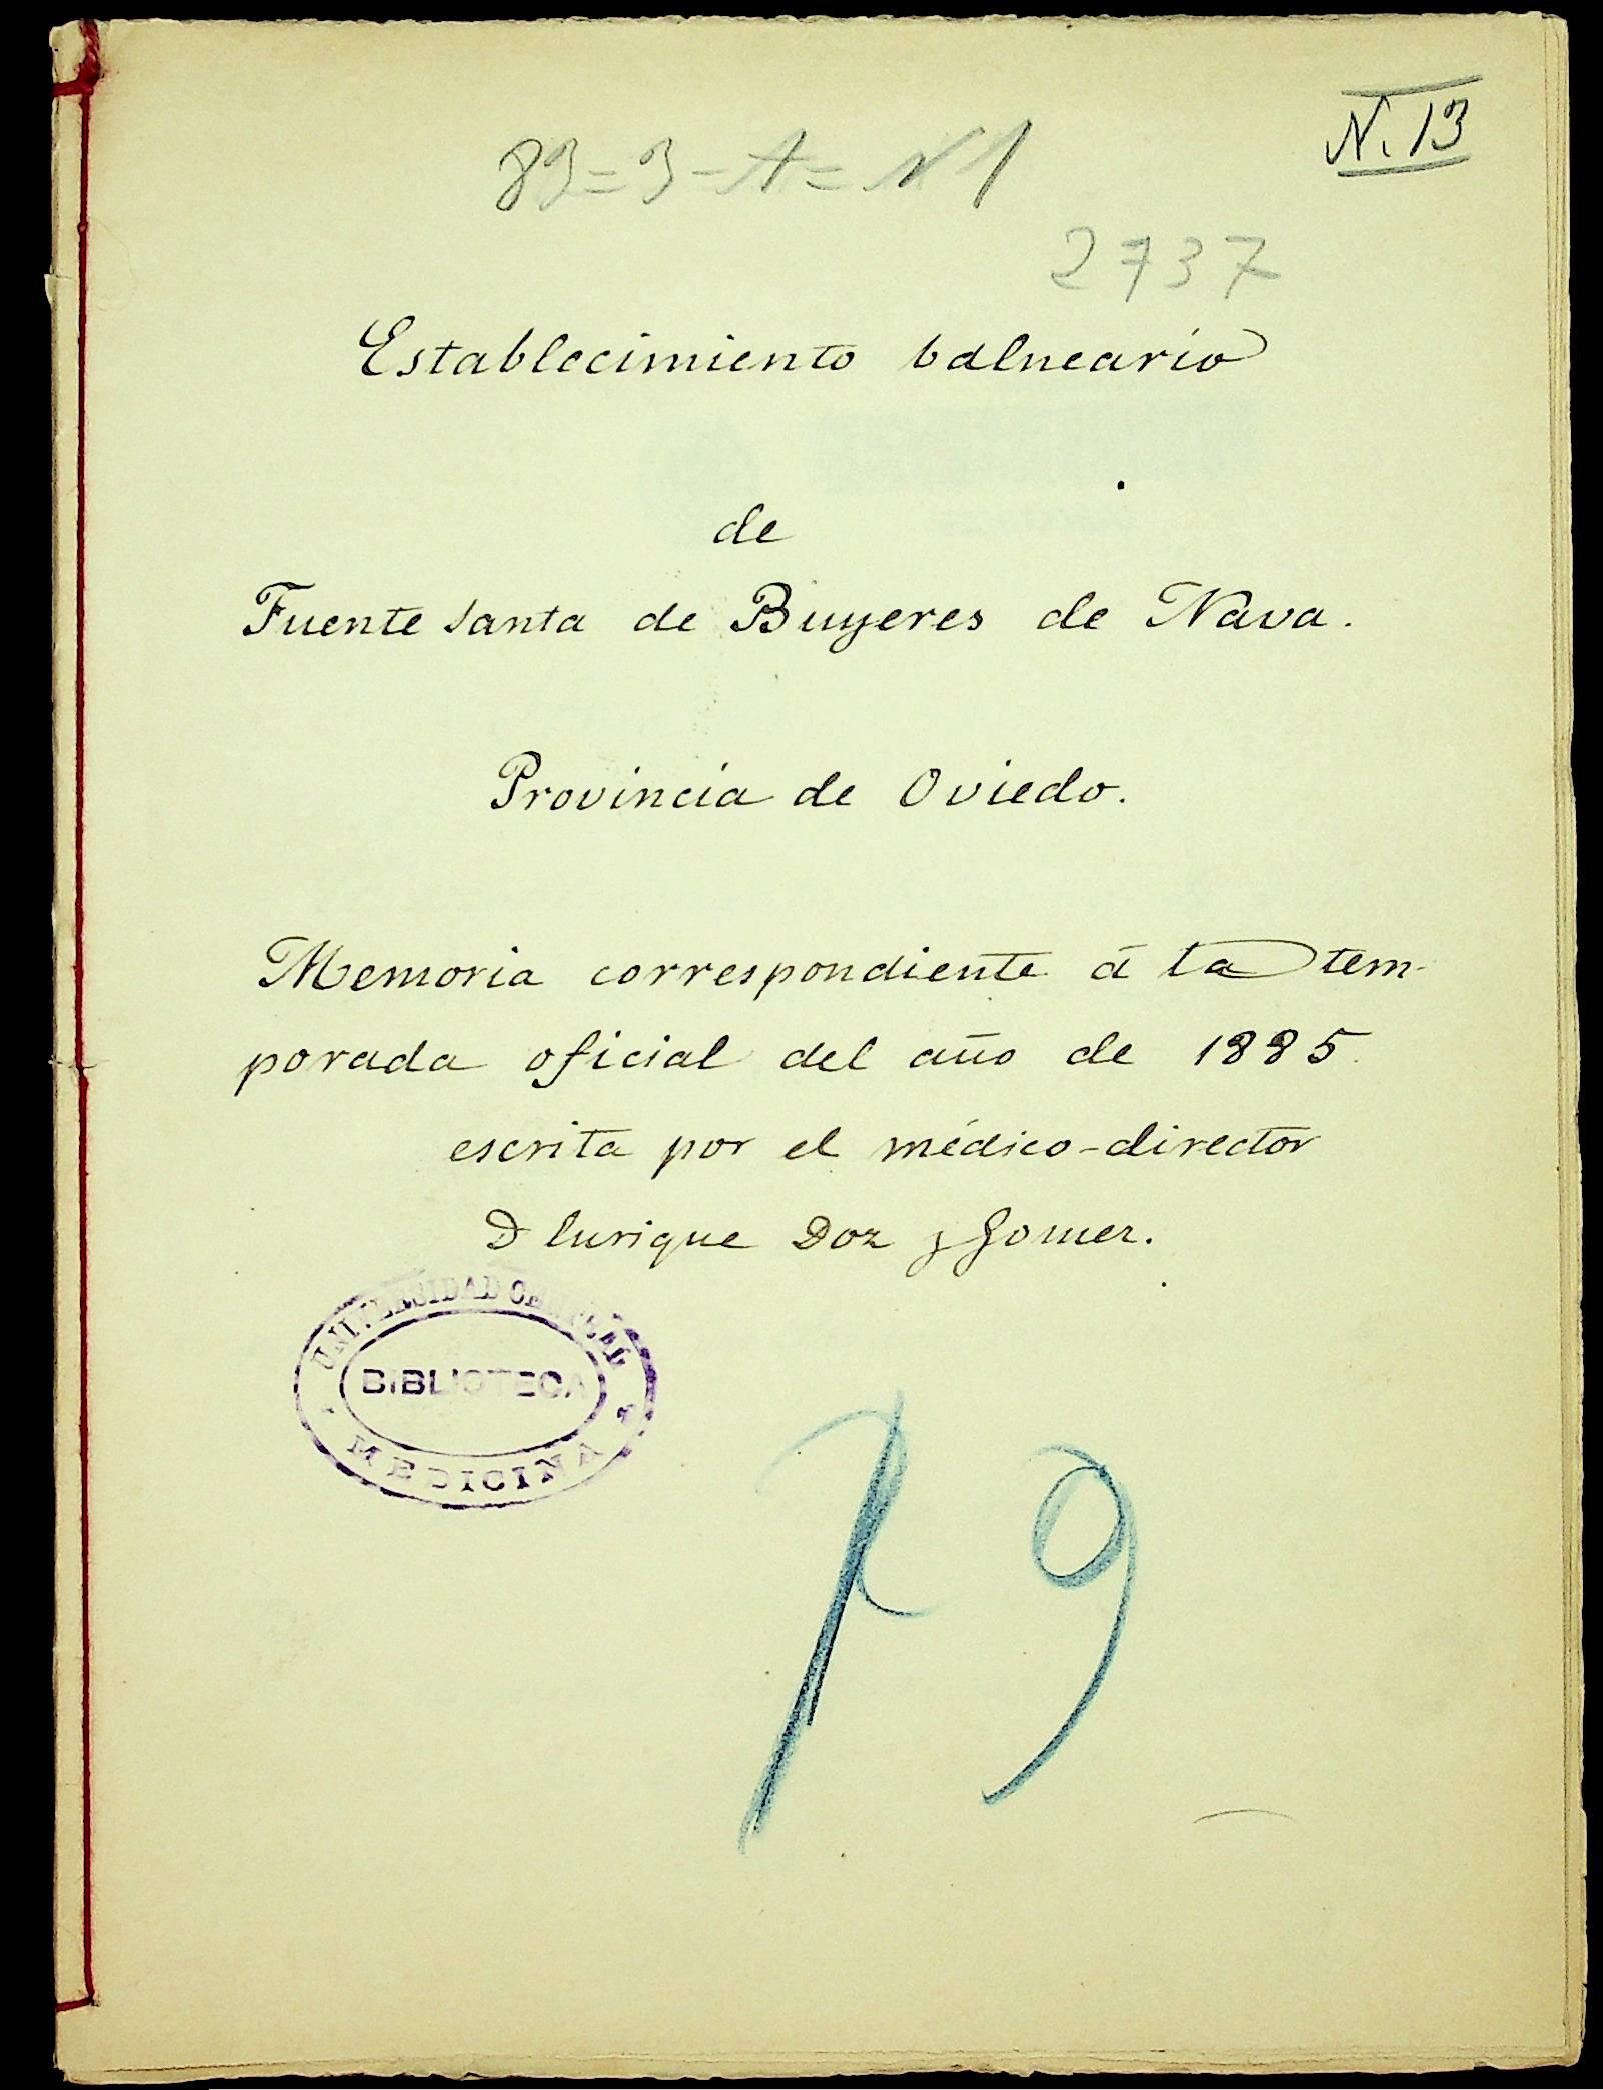 N. 13
83=3-A=N 1
2737
Establecimiento balneario
de
Fuente Santa de Buyeres de Nava.
Provincia de Oviedo.
Memoria correspondiente á la tem-
porada oficial del año de 1885.
escrita por el médico-director
D Enrique Doz y Gomez.
UNIVERSIDAD CENTRAL
BIBLIOTECA
MEDICINA
19